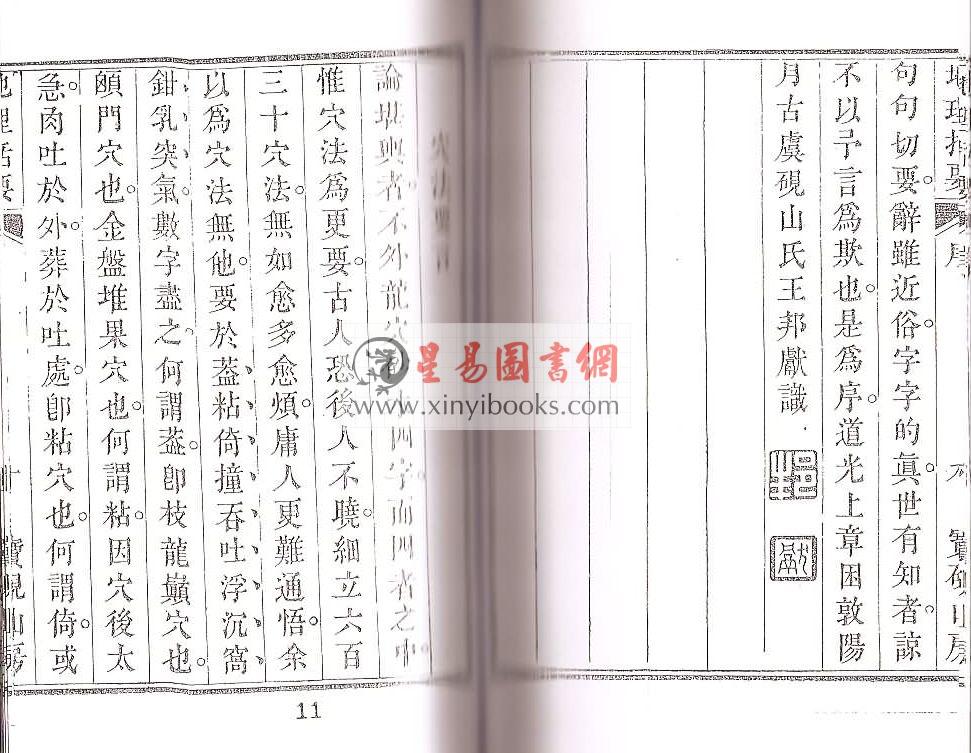 句句切要。辭雖近俗。字字的眞。世有知者。諒
不以予言爲欺也。是爲序。道光上章困敦陽
月古虞硯山氏王邦獻識
穴法要言
論堪輿者不外龍穴 四字而四者之中
惟穴法爲更要。古人恐後人不曉。細立六百
三十穴法。無如愈多愈煩。庸人更難通悟。余
以爲穴法無他。要於葢、粘、倚、撞、吞、吐、浮、沉、窩、
鉗、乳、突、氣。數字盡之。何謂葢。卽枝龍巔穴也。
頤門穴也。金盤堆果穴也。何謂粘。因穴後太
急。肉吐於外。葬於吐處。卽粘穴也。何謂倚。或
星易圖書網
www.xinyibooks.com
11